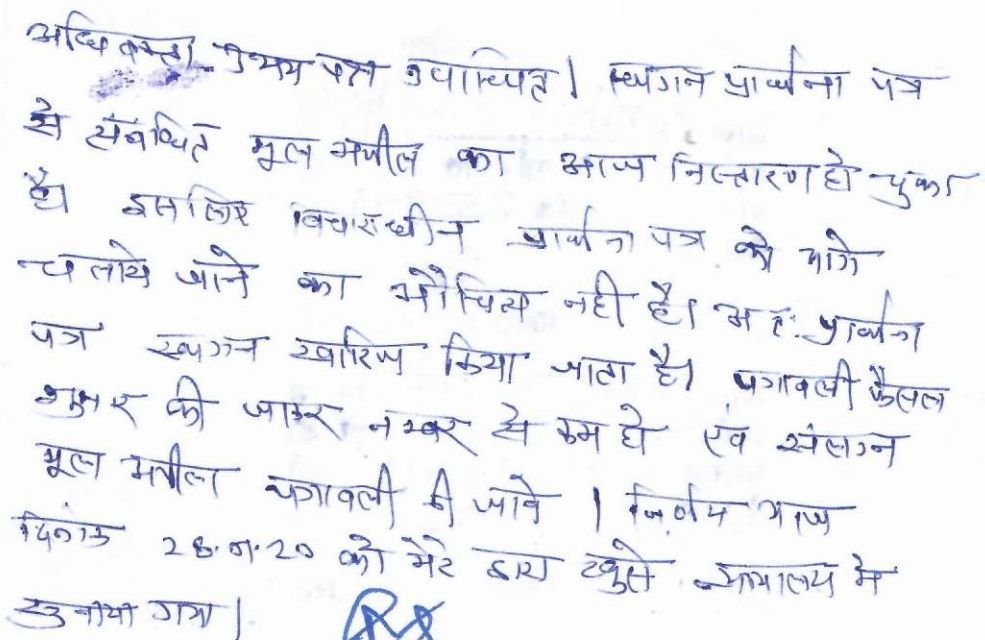 अधिवक्ता उभय पक्ष उपस्थित। स्थगन प्रार्थना पत्र
से संबंधित मूल अपील का आज निस्तारण हो चुका
है। इसलिए विचाराधीन प्रार्थना पत्र को आगे
चलाये जाने का औचित्य नही है। अतः प्रार्थना
पत्र स्थगन खारिज किया जाता है। पत्रावली फैसल
शुमार की जाकर नम्बर से कम हो एवं संलग्न
मूल अपील पत्रावली की जावे। निर्णय आज
दिनांक 28.01.20 को मेरे द्वारा खुले न्यायालय मे
सुनाया गया।